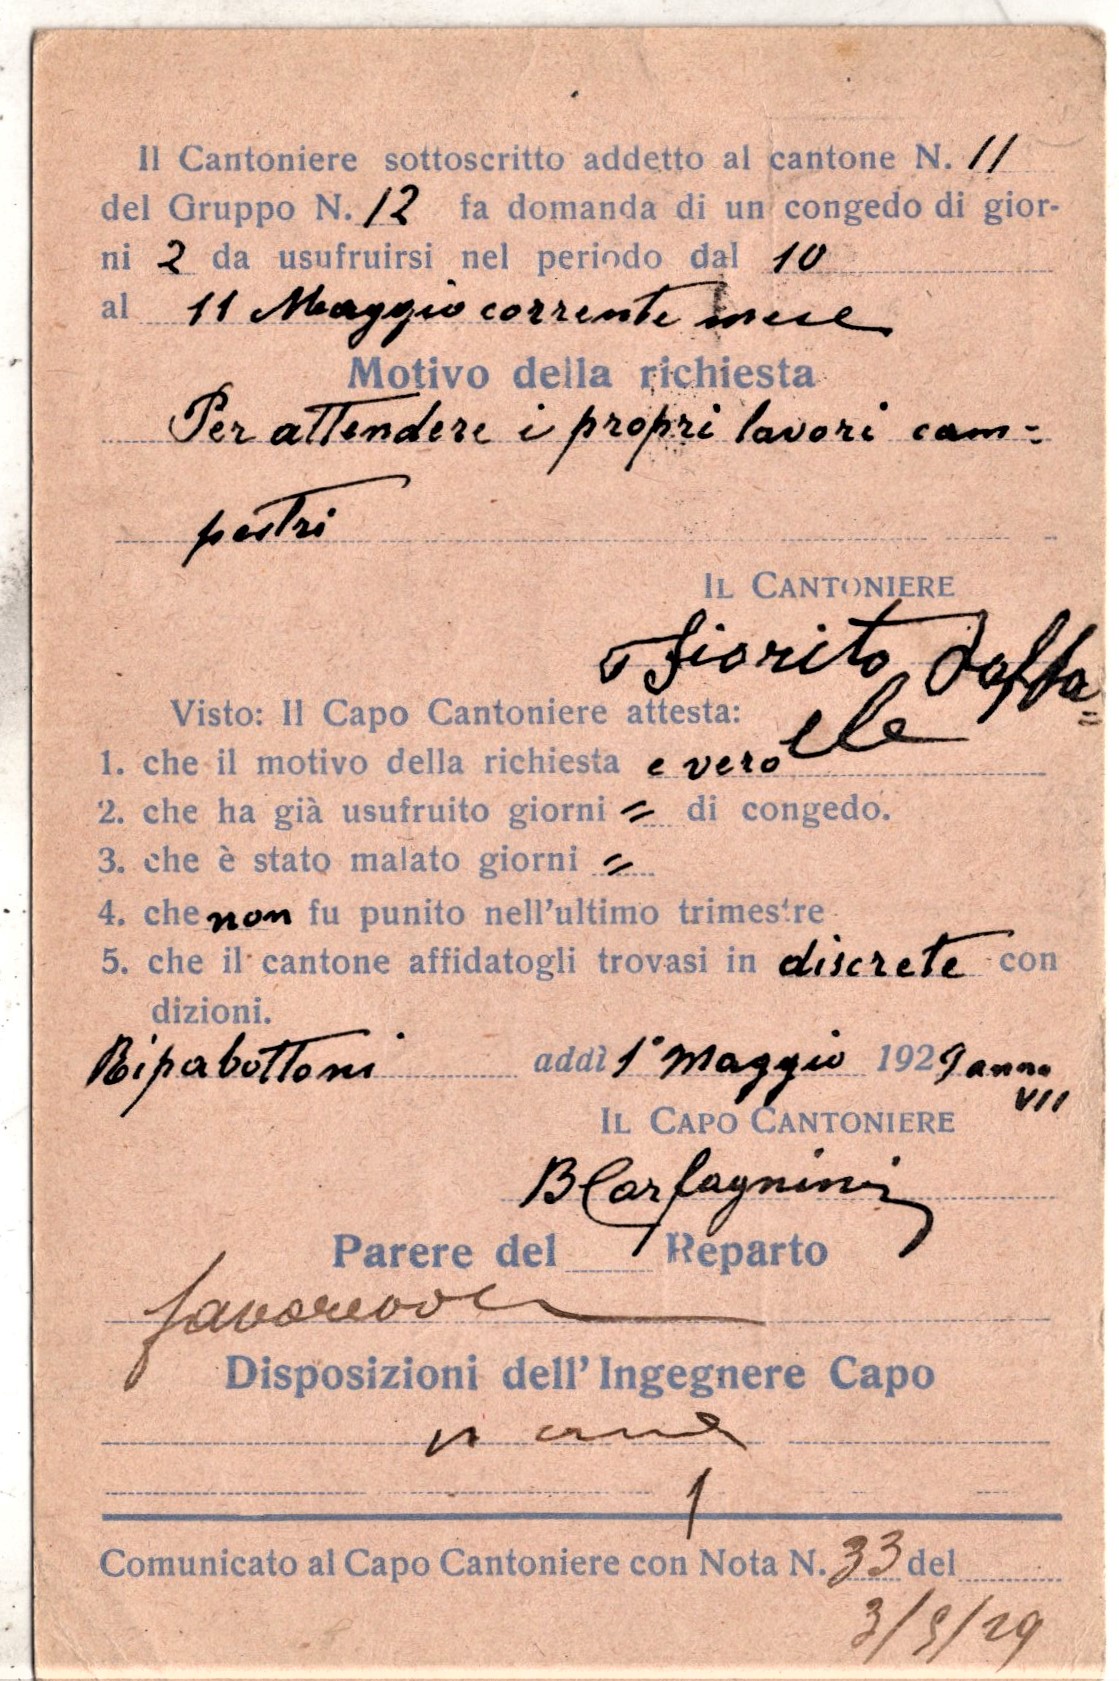 Il Cantoniere sottoscritto addetto al cantone N. 11
del Gruppo N. 12 fa domanda di un congedo di gior-
ni 2 da usufruirsi nel periodo dal 10
al 11 Maggio corrente mese
Motivo della richiesta
Per attendere i propri lavori cam=
pestri
IL CANTONIERE
Fiorito Raffa=
ele
Visto: Il Capo Cantoniere attesta:
1. che il motivo della richiesta e vero
2. che ha già usufruito giorni = di congedo.
3. che è stato malato giorni =
4. che non fu punito nell'ultimo trimestre
5. che il cantone affidatogli trovasi in discrete con
dizioni.
Ripabottoni addì 1° Maggio 1929 anno
VII
IL CAPO CANTONIERE
B Carfagnini
Parere del Reparto
favorevole
Disposizioni dell'Ingegnere Capo
Comunicato al Capo Cantoniere con Nota N. 33 del
3/5/29